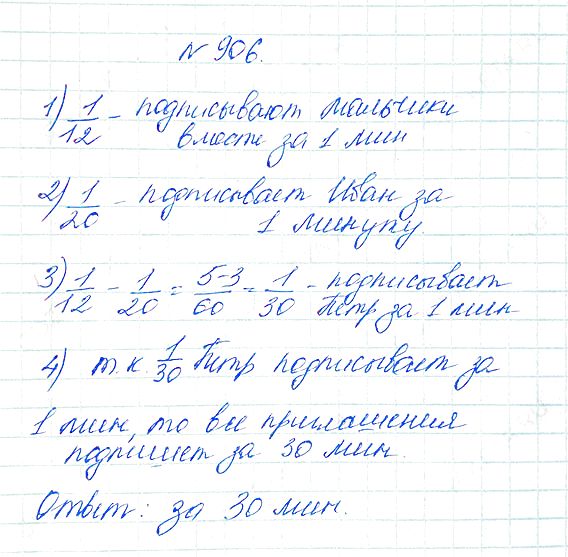 № 906.
1) 1/12 - подписывают мальчики
вместе за 1 мин
2) 1/20 - подписывает Иван за
1 минуту.
3) 1/12 - 1/20 = 5-3/60 = 1/30 - подписывает
Петр за 1 мин
4) т.к. 1/30 Петр подписывает за
1 мин, то все приглашения
подпишет за 30 мин.
Ответ: за 30 мин.